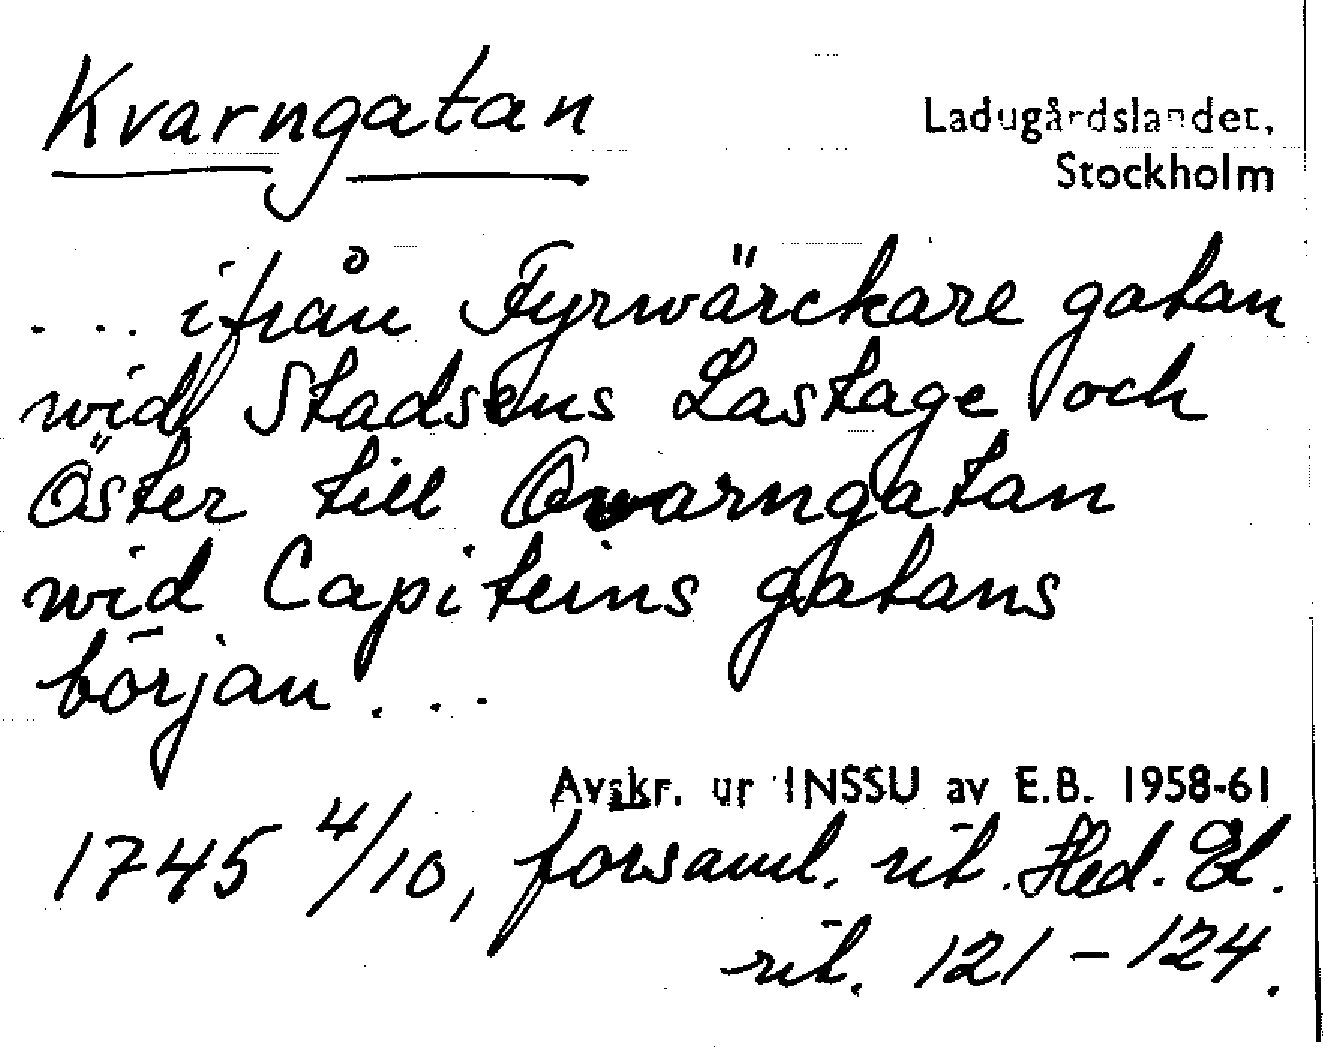 Kvarngatan
Ladugårdslandet,
Stockholm
... ifrån Fyrwärckare gatan
wid Stadsens Lastage och
Öster till Qwarngatan
wid Capiteins gatans
början ...
Avskr. ur INSSU av E.B. 1958-61
1745 4/10, församl. rit. Hed. El.
rit. 121-124.